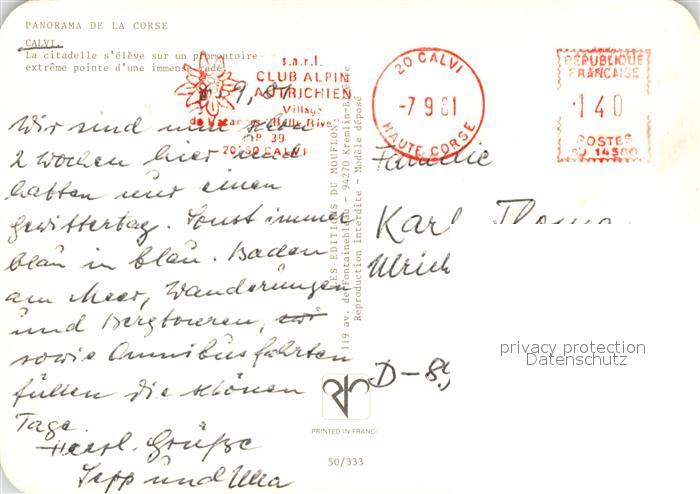 PANORAMA DE LA CORSE
CALVI.
La citadelle s'élève sur un promontoire
extrême pointe d'une immense rade
s.a.r.l.
CLUB ALPIN
AUTRICHIEN
Village
de Vacances "Belle Rive"
BP. 39
20260 CALVI
20 CALVI
-7 9 81
HAUTE CORSE
RÉPUBLIQUE
FRANÇAISE
140
POSTES
Wir sind nun schon
2 Wochen hier und
hatten nur einen
Gewittertag. Sonst immer
blau in blau. Baden
am Meer, Wanderungen
und Bergtouren, wir
sowie Omnibusfahrten
füllen die schönen
Tage.
Herzl. Grüße
Sepp und Ulla
LES EDITIONS DU MOUFLON
119 av. de Fontainebleau - 94270 Kremlin-Bicêtre
Reproduction interdite - Modèle déposé
Familie
Karl
Ulrich
D-89
privacy protection
Datenschutz
PRINTED IN FRANCE
50/333